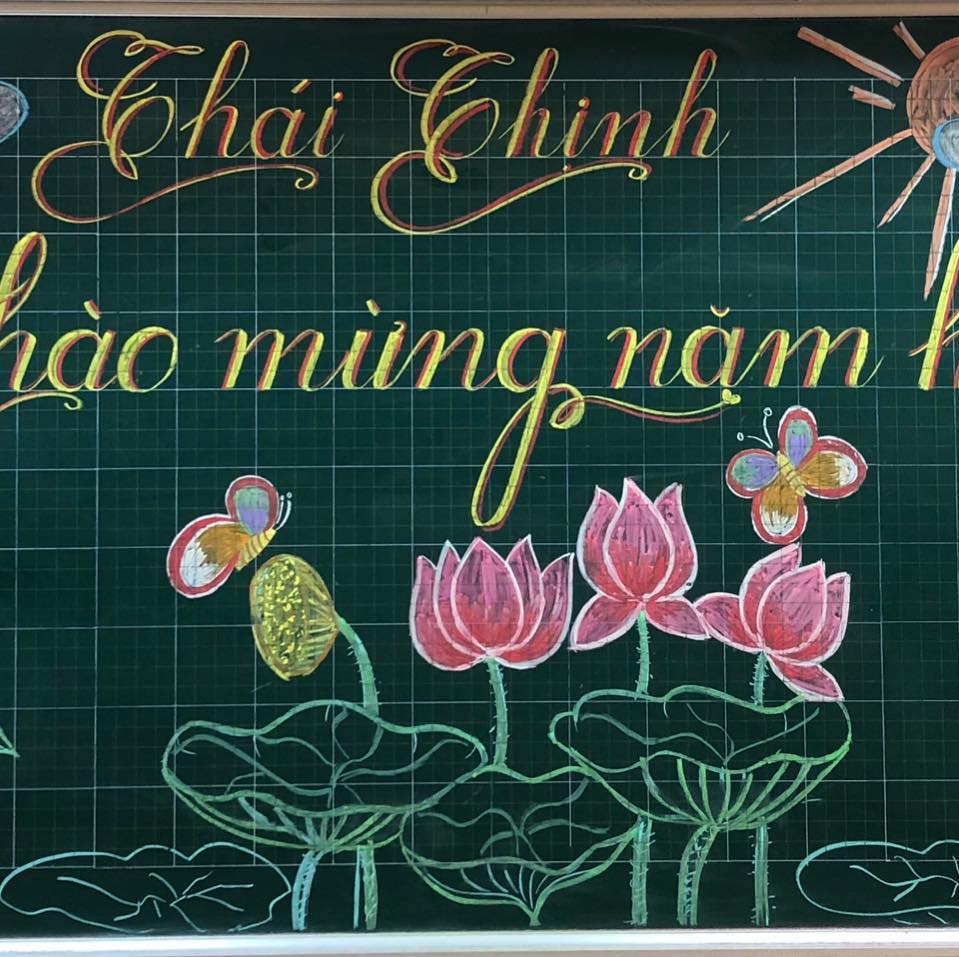 Thái Thịnh
hào mừng năm h